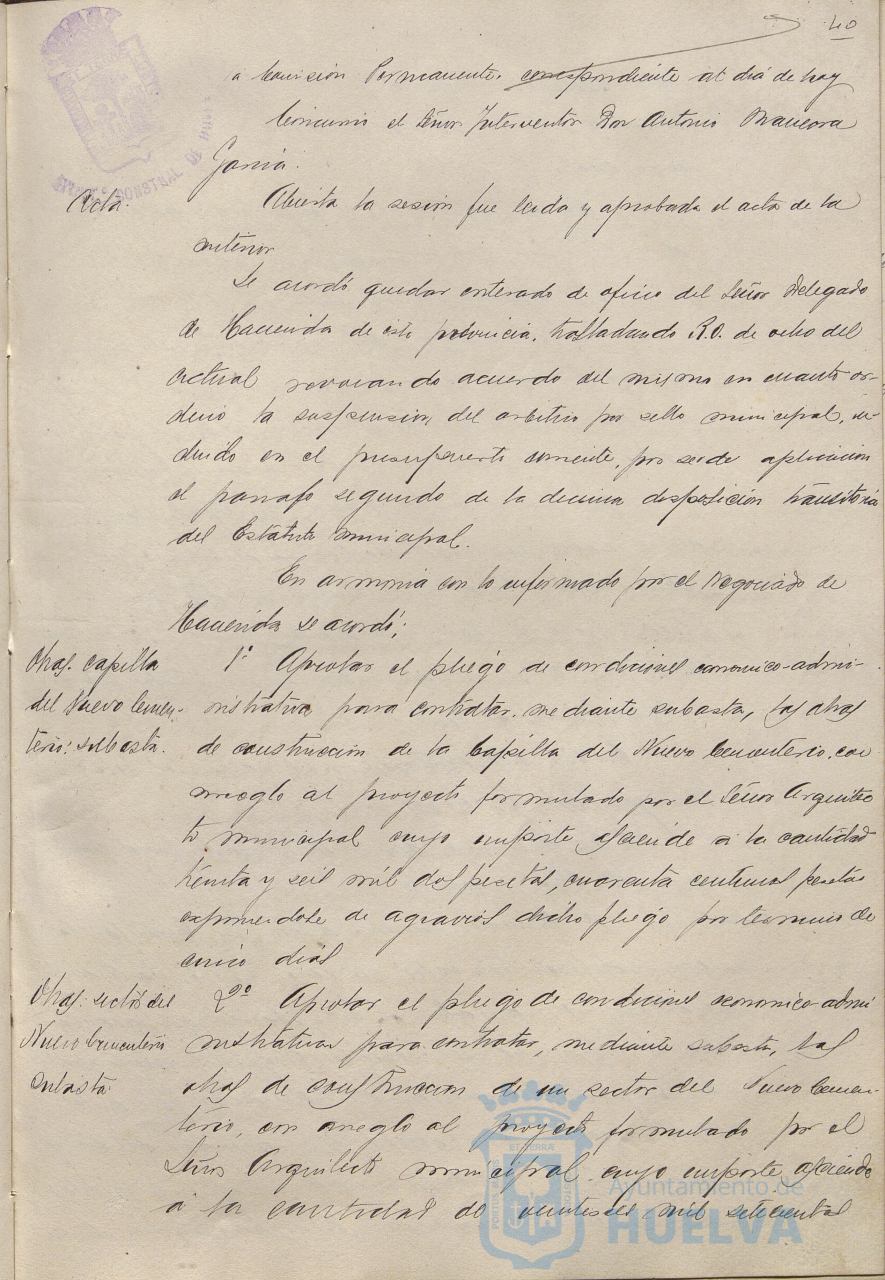 40
a Comisión Permanente correspondiente al día de hoy
Concurrió el Señor Interventor Don Antonio Mancora
García.
Acta.
Abierta la sesión fue leida y aprobada el acta de la
anterior
Se acordó quedar enterado de oficio del Señor Delegado
de Hacienda de esta provincia, trasladando R.O. de ocho del
actual revocando acuerdo del mismo en cuanto or-
denó la suspensión del arbitrio por sello municipal, in-
cluido en el presupuesto corriente, por ser de aplicacion
el parrafo segundo de la decima disposición transitoria
del Estatuto municipal.
En armonia con lo informado por el Negociado de
Hacienda se acordó;
Obras. capilla
del Nuevo Cemen-
terio: subasta.
1º Aprobar el pliego de condiciones economico-admi-
nistrativas para contratar, mediante subasta, las obras
de construccion de la Capilla del Nuevo Cementerio, con
arreglo al proyecto formulado por el Señor Arquitec
to municipal cuyo importe asciende a la cantidad
treinta y seis mil dos pesetas, cuarenta centimos pesetas
exponiendose de agravios dicho pliego por termino de
cinco dias
Obras. sector del
Nuevo Cementerio
subasta
2º Aprobar el pliego de condiciones economico-admi
nistrativas para contratar, mediante subasta, las
obras de construccion de un sector del Nuevo Cemen-
terio, con arreglo al proyecto formulado por el
Señor Arquitecto municipal cuyo importe asciende
a la cantidad de veintiseis mil setecientas
Ayuntamiento de
HUELVA